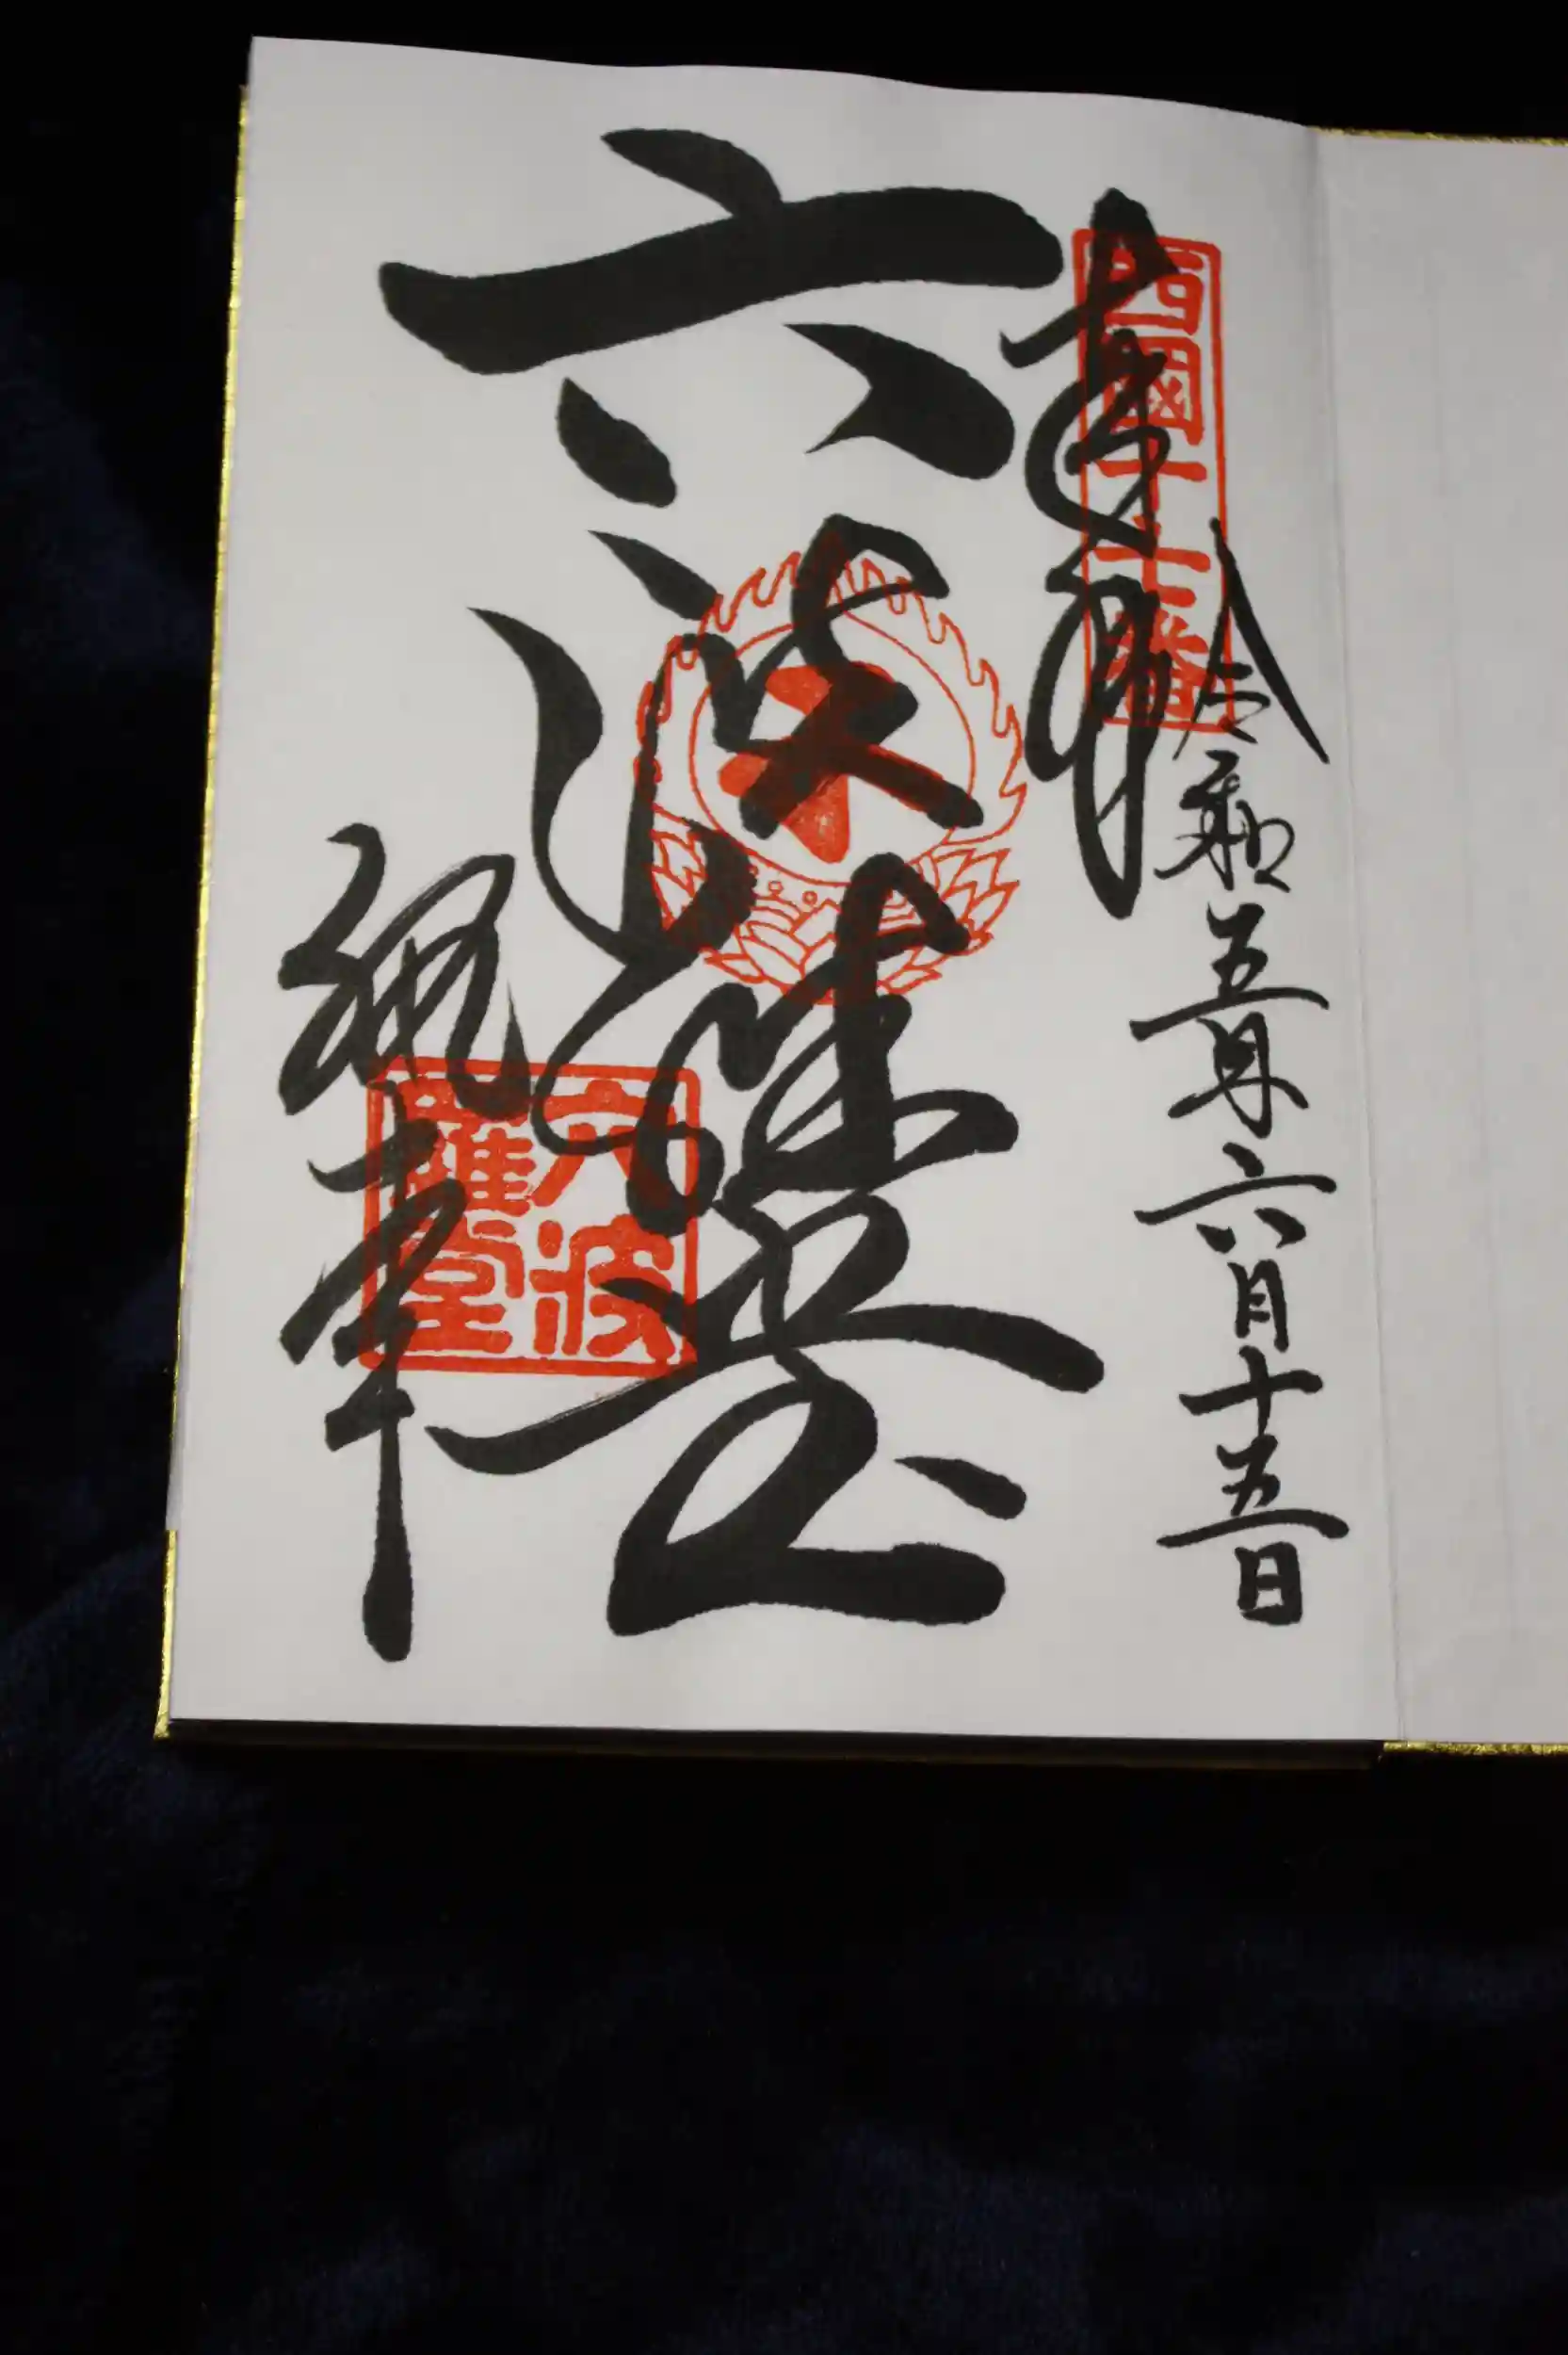 令和五年六月十五日
奉拝
西國十七番
六波羅堂
六波羅堂